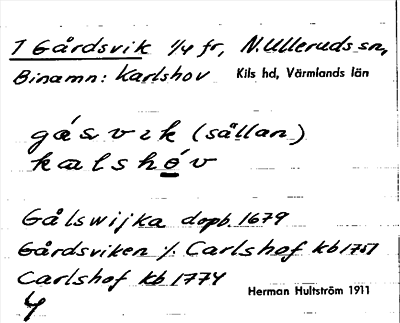 1 Gårdsvik 1/4 fr, N. Ulleruds sn,
Binamn: Karlshov Kils hd, Värmlands län
gá̊svɩk (sällan)
kalshó̲v
Gålswijka dopb. 1679
Gårdsviken /. Carlshof kb 1751
Carlshof kb 1774
Herman Hultström 1911